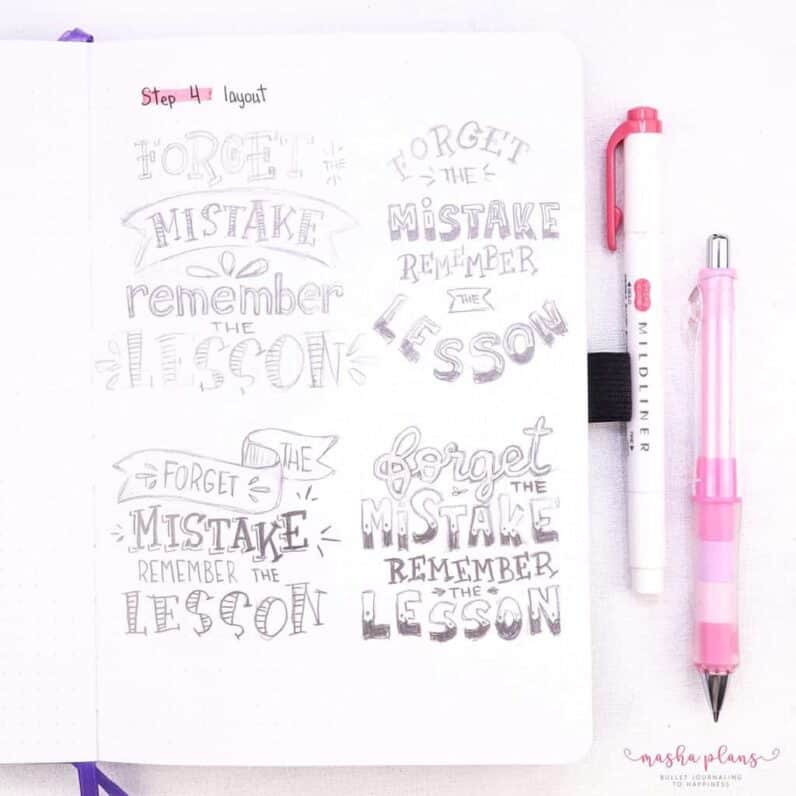 Step 4: layout
FORGET THE
MISTAKE
remember
THE
LESSON
FORGET
THE
MiSTAKE
REMEMBER
THE
LESSON
FORGET THE
MISTAKE
REMEMBER THE
LESSON
forget
THE
MiSTAKE
REMEMBER
THE
LESSON
MILDLINER
masha plans
BULLET JOURNALING
TO HAPPINESS